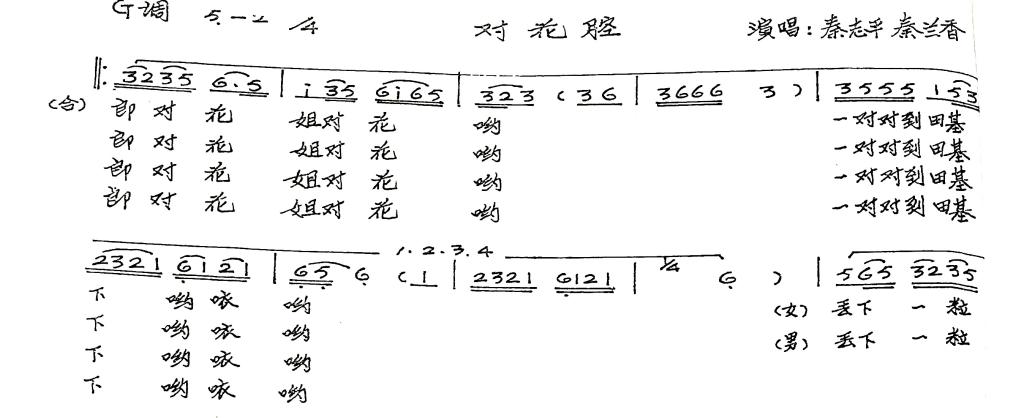 G调 5.—2 /4 对花腔 演唱：秦志平 秦兰香
‖: 3235 6·5 | i 35 6i65 | 323 (36 | 3666 3 ) | 3555 153
(合) 郎对花 姐对花 哟 一对对到田基
郎对花 姐对花 哟 一对对到田基
郎对花 姐对花 哟 一对对到田基
郎对花 姐对花 哟 一对对到田基
1.2.3.4
2321 6i21 | 65 6 (1 | 2321 6121 | 1/4 6 ) | 565 3235
下 哟咳 哟 (女) 丢下一粒
下 哟咳 哟 (男) 丢下一粒
下 哟咳 哟
下 哟咳 哟